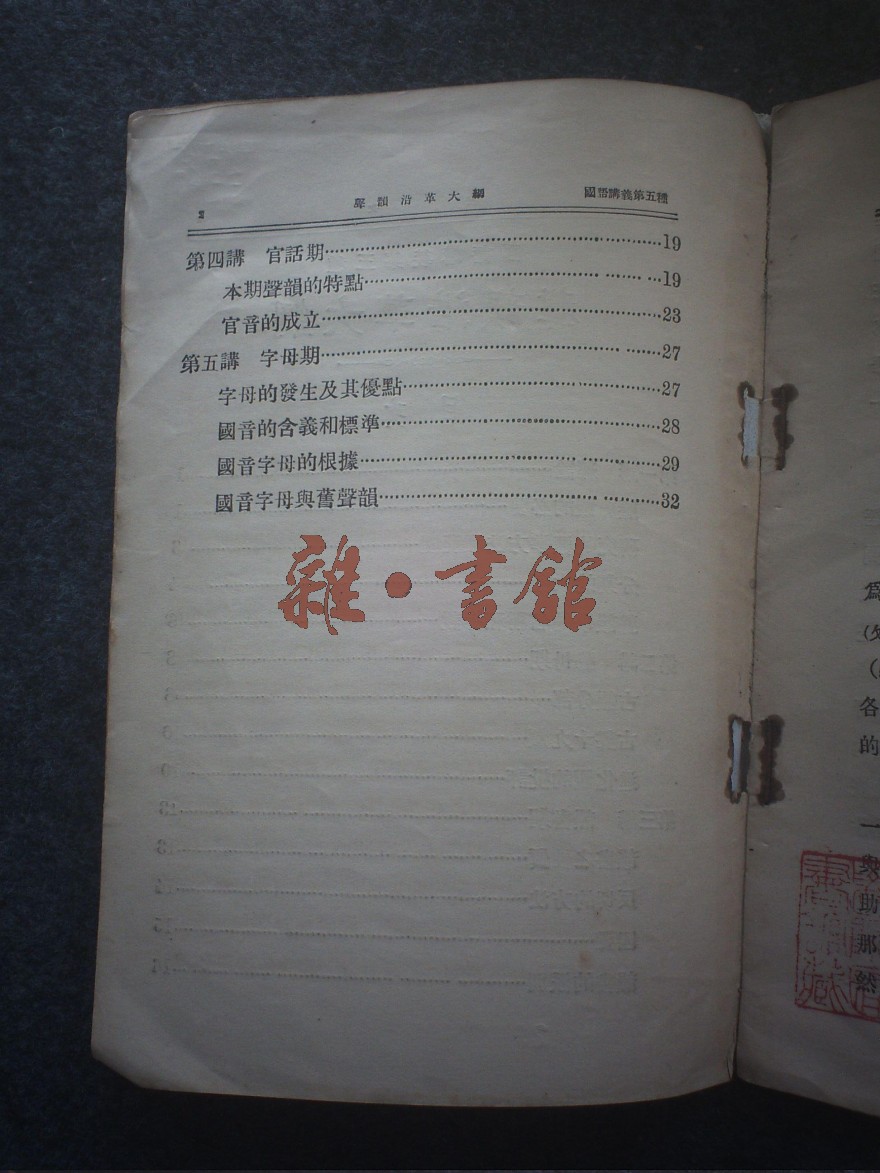 2 聲韻沿革大綱 國語講義第五種
第四講 官話期……19
本期聲韻的特點……19
官音的成立……23
第五講 字母期……27
字母的發生及其優點……27
國音的含義和標準……28
國音字母的根據……29
國音字母與舊聲韻……32
雜·書館
為
各
的
一
與
助
那
然